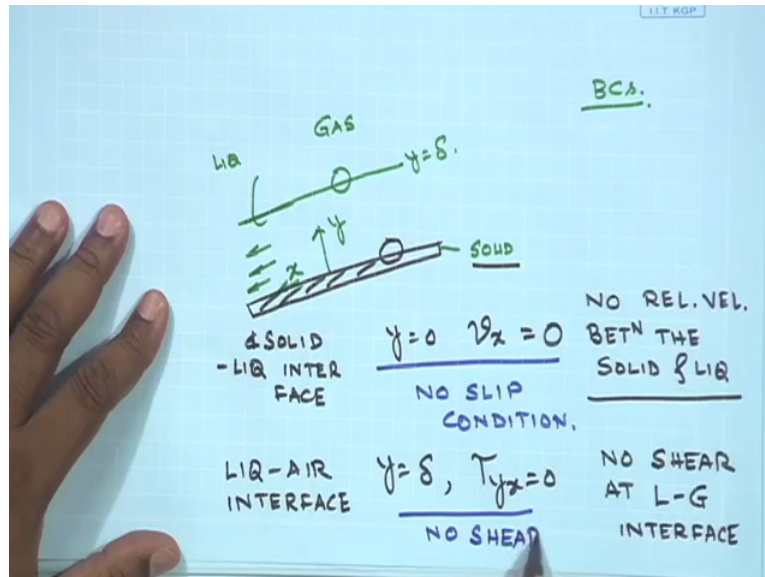 I.I.T. KGP
BCs.
GAS
LIQ
y=δ.
y
SOLID
x
@SOLID
-LIQ INTER
FACE
y=0 υx = 0
NO SLIP
CONDITION,
NO REL. VEL.
BETN THE
SOLID & LIQ
LIQ-AIR
INTERFACE
y=δ, τyx=0
NO SHEAR
NO SHEAR
AT L-G
INTERFACE